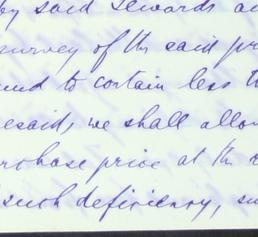 by said Sewards an
survey of the said pr
und to contain less t
esaid, we shall allow
rchase price at the r
such deficiency, su